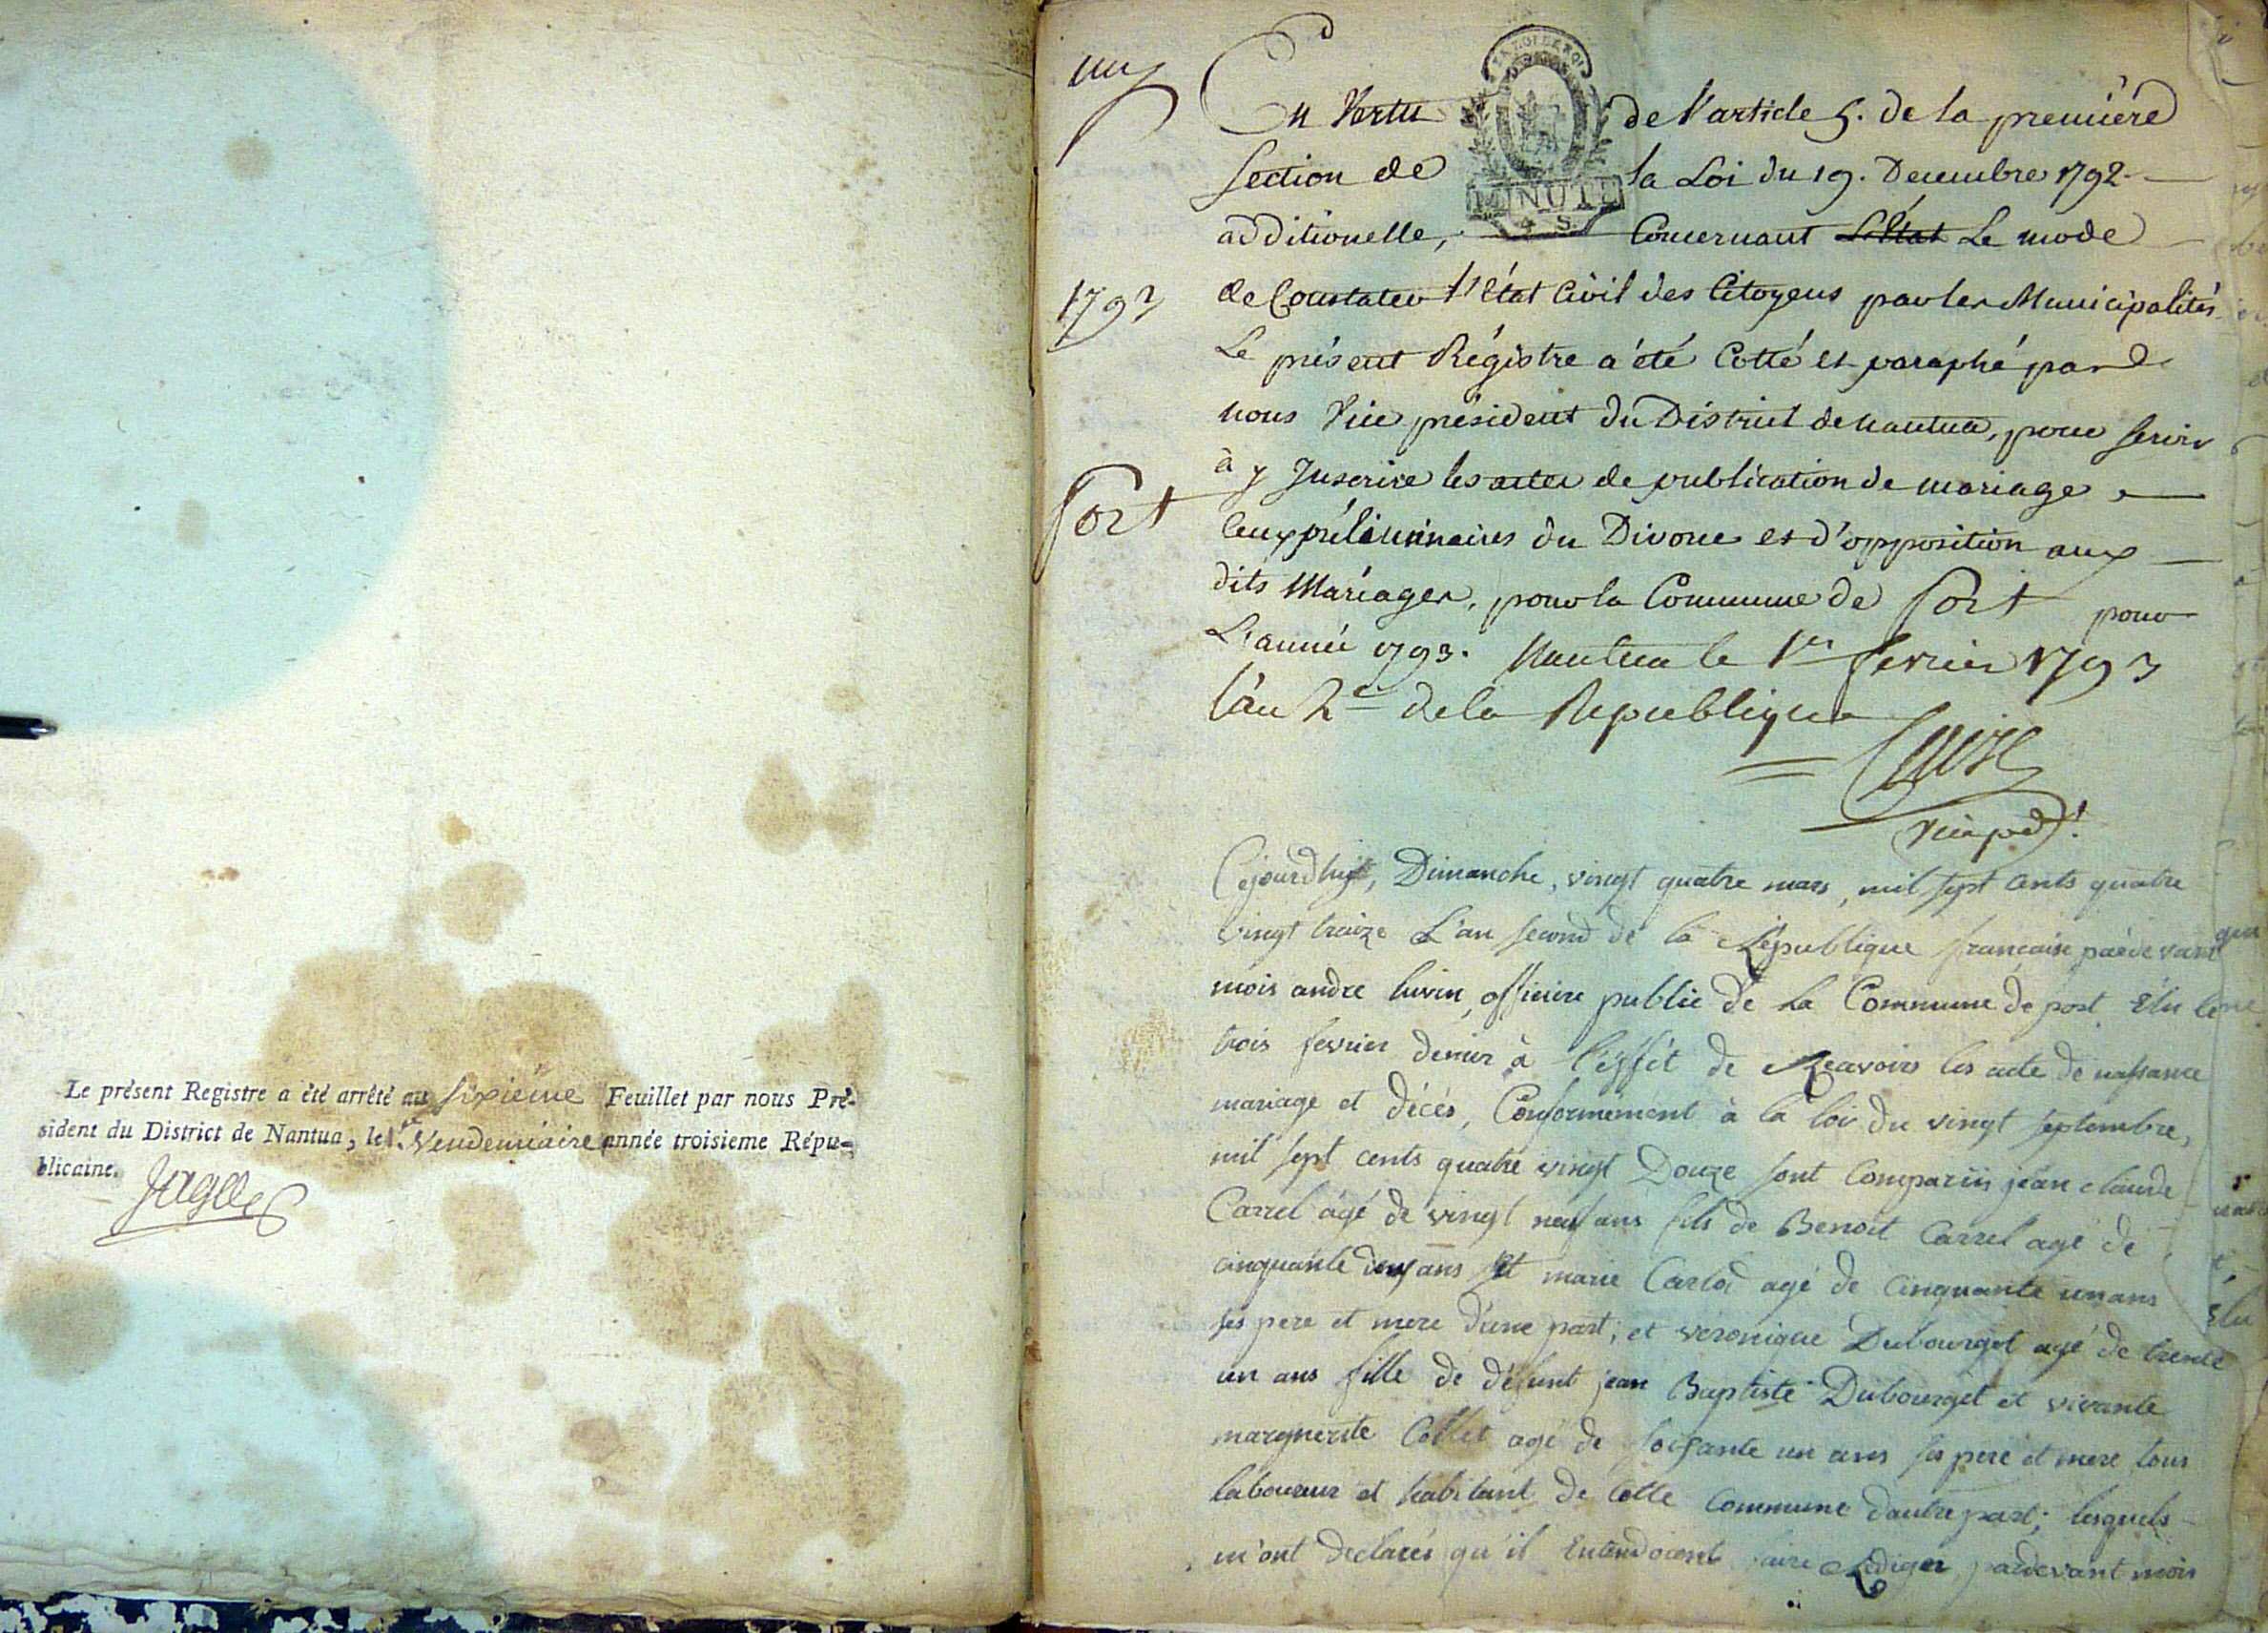 Le présent Registre a été arrêté au sixieme Feuillet par nous Pré-
sident du District de Nantua, le 1.er Vendemiaire année troisieme Répu-
blicaine.
1793
Port
LA LOI LE ROI
MINUTE
4 S.
En Vertu de l'article 5. de la premiere
Section de la Loi du 19. Decembre 1792
additionelle, Concernant L'Etat Le mode
de Constater l'Etat Civil des Citoyens par les Municipalités
Le présent Régistre a été Cotté et paraphé par
nous Vice président du District de nantua, pour servir
à y Inscrire les actes de publication de mariage
Ceux préliminaires du Divorce et d'opposition aux
dits Mariages, pour la Commune de Port pour
L'année 1793. Nantua le 1er fevrier 1793
l'an 2e de la Republique
vice pdt
Cejourdhuy, Dimanche, vingt quatre mars, mil sept cents quatre
vingt traize L'an second de la République francaise pardevant
mois andre officiere public de la Commune de port Elu le
trois fevrier denier à l'effét de Recavoir les acte de naissance
mariage et décés, Conformément à la loi du vingt septembre,
mil sept cents quatre vingt Douze sont Comparus jean claude
Carrel agé de vingt neuf ans fils de Benoit Carrel agé de
cinquante deux ans Et marie Carlod agé de Cinquante un ans
ses pere et mere d'une part; et veronique Dubourget agé de trente
un ans fille de défunt jean Baptiste Dubourget et vivante
marguerite Collet agé de soixante un ans ses pere et mere tous
laboureur et habitant de Cette Commune dautre part; lesquels
m'ont declarés qu'il Entendoient faire Rediger pardevant mois